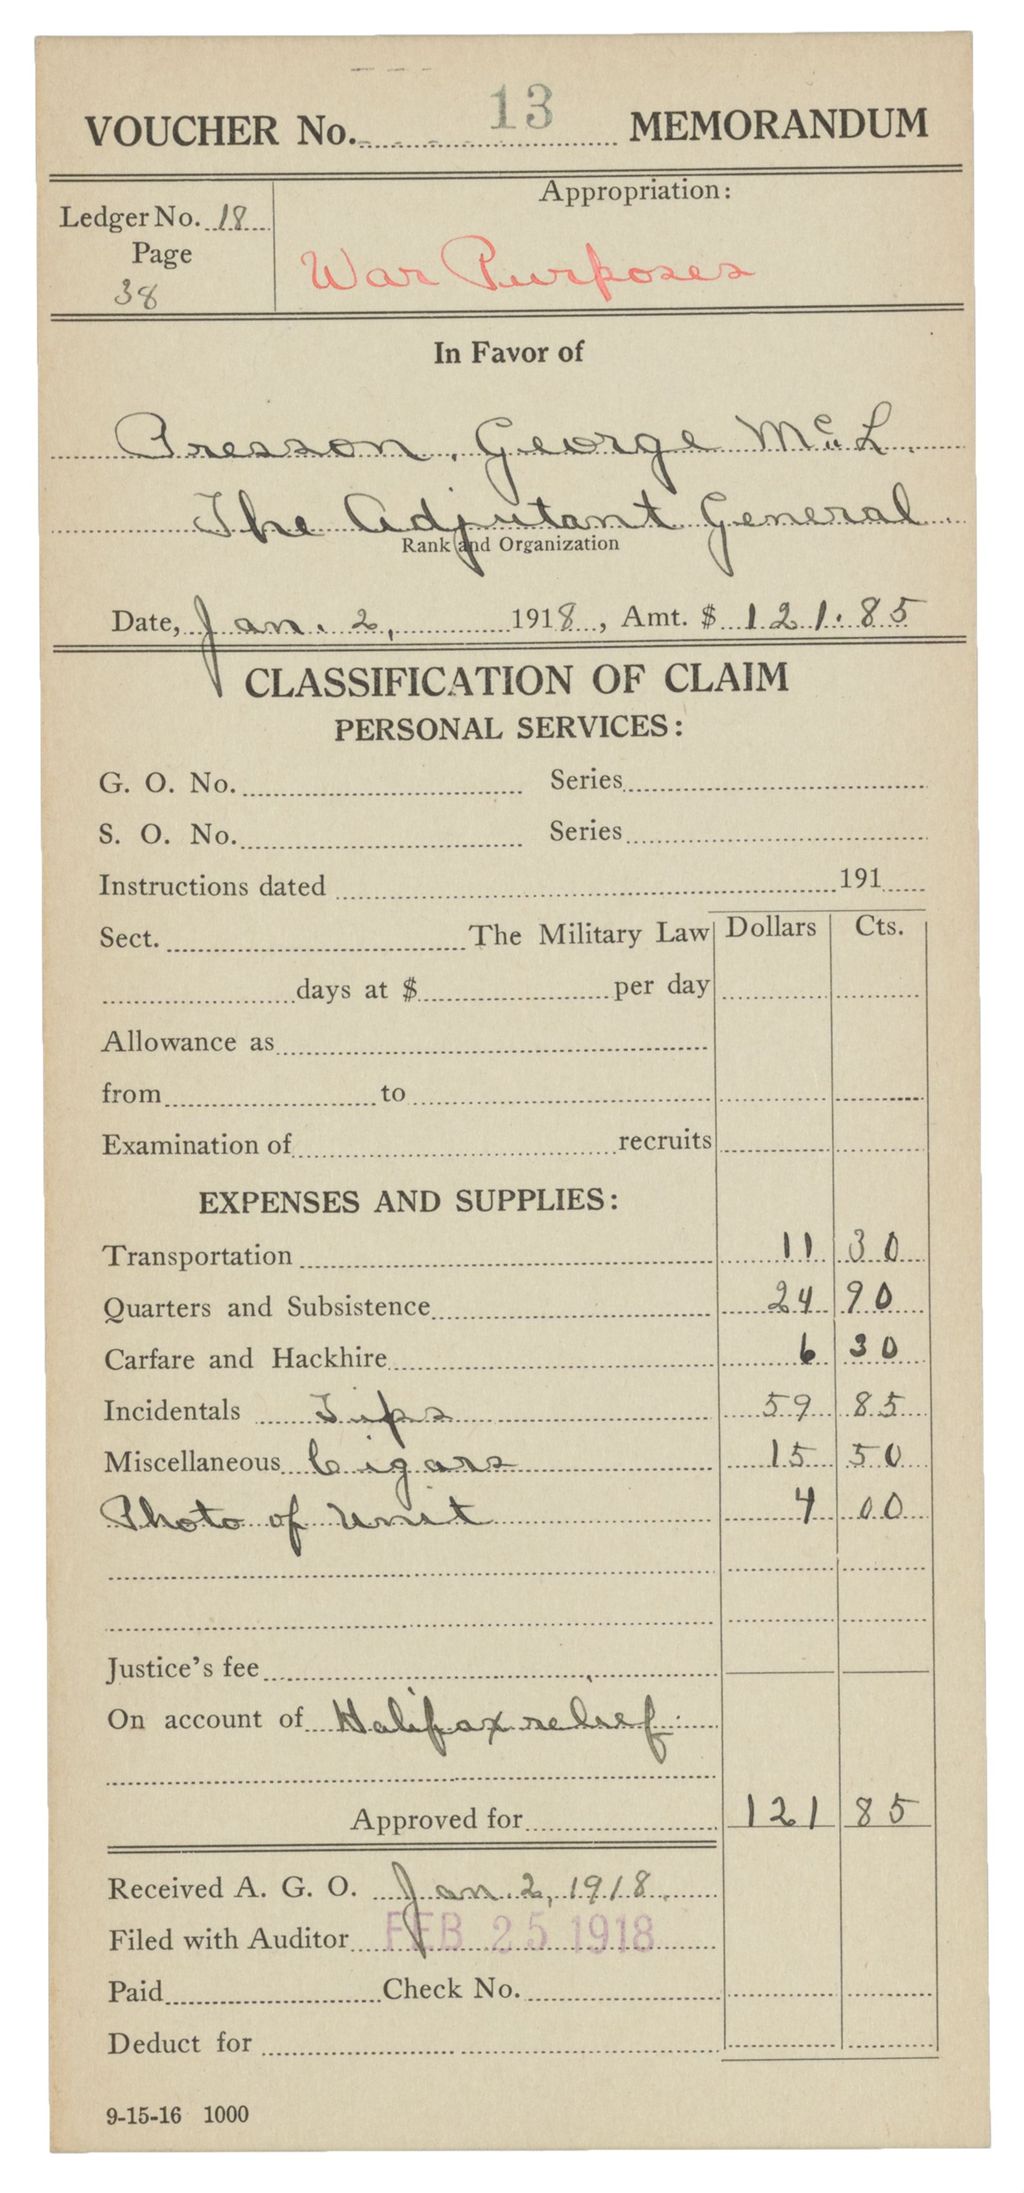 VOUCHER No. 13 MEMORANDUM
Appropriation:
Ledger No. 18
Page
38
War Purposes
In Favor of
Presson, George McL.
The Adjutant General
Rank and Organization
Date, Jan. 2, 1918, Amt. $ 121.85
CLASSIFICATION OF CLAIM
PERSONAL SERVICES:
G. O. No. Series
S. O. No. Series
Instructions dated 191
Sect. The Military Law Dollars Cts.
days at $ per day
Allowance as
from to
Examination of recruits
EXPENSES AND SUPPLIES:
Transportation 11 30
Quarters and Subsistence 24 90
Carfare and Hackhire 6 30
Incidentals Tips 59 85
Miscellaneous Cigars 15 50
Photo of Unit 4 00
Justice's fee
On account of Halifax relief.
Approved for 121 85
Received A. G. O. Jan. 2, 1918.
Filed with Auditor FEB 25 1918
Paid Check No.
Deduct for
9-15-16 1000